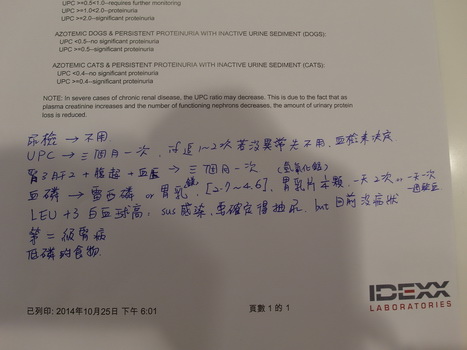 UPC >=0.5<1.0–requires further monitoring
UPC >=1.0<2.0– proteinuria
UPC >=2.0–significant proteinuria
AZOTEMIC DOGS & PERSISTENT PROTEINURIA WITH INACTIVE URINE SEDIMENT (DOGS):
UPC <0.5–no significant proteinuria
UPC >=0.5–significant proteinuria
AZOTEMIC CATS & PERSISTENT PROTEINURIA WITH INACTIVE URINE SEDIMENT (CATS):
UPC <0.4–no significant proteinuria
UPC >=0.4–significant proteinuria
NOTE: In severe cases of chronic renal disease, the UPC ratio may decrease. This is due to the fact that as
plasma creatinine increases and the number of functioning nephrons decreases, the amount of urinary protein
loss is reduced.
尿檢 → 不用
UPC → 三個月一次, 1~2次若沒異常先不用, 血檢來決定
腎 2 + 腹超 + 血壓 → 三個月一次 (氫氧化鋁)
血磷 → or 胃乳, [2.7~4.6], 胃乳片半顆, 一天2次 or 一天一次
LEU +3 白血球高, sus 感染, 要確定得抽尿, but 目前沒症狀
第二級腎病
低磷的食物
IDEXX
LABORATORIES
已列印: 2014年10月25日 下午 6:01 頁數 1 的 1